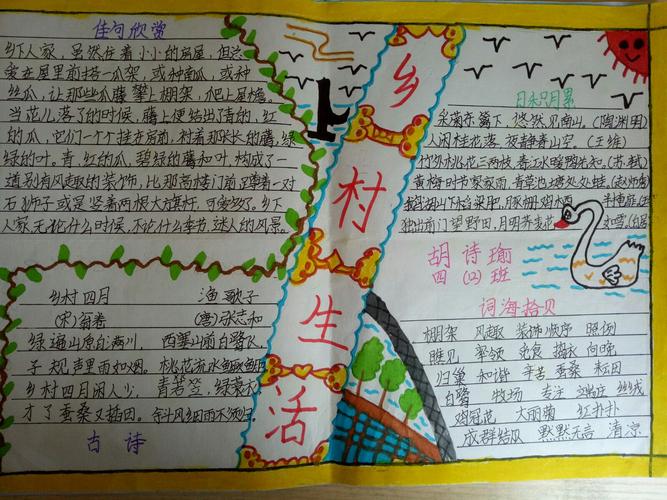 佳句欣赏
乡下人家，虽然住着小小的房屋，但总
爱在屋里前搭一瓜架，或种南瓜，或种
丝瓜，让那些瓜藤攀上棚架，爬上屋檐。
当花儿落了的时候，藤上便结出了青的，红
的瓜，它们一个个挂在房前，衬着那长长的藤，绿
绿的叶。青，红的瓜，碧绿的藤和叶，构成了一
道别有风趣的装饰，比那高楼门前蹲着一对
石狮子或是竖着两根大旗杆，可爱多了。乡下
人家无论什么时候，不论什么季节，迷人的风景。
乡村四月
(宋)翁卷
绿遍山原白满川，
子规声里雨如烟。
乡村四月闲人少，
才了蚕桑又插田。
渔歌子
(唐)张志和
西塞山前白鹭飞，
桃花流水鳜鱼肥
青箬笠，绿蓑衣
斜风细雨不须归。
古诗
乡村生活
日积月累
采菊东篱下，悠然见南山。(陶渊明)
人闲桂花落，夜静春山空。(王维)
竹外桃花三两枝，春江水暖鸭先知。(苏轼)
黄梅时节家家雨，青草池塘处处蛙。(赵师秀)
鹅湖山下稻粱肥，豚栅鸡栖
独出前门望野田，月明荞麦花
胡诗瑜
四(2)班
词海拾贝
棚架 风趣 装饰 顺序 照例
瞧见 率领 觅食 捣衣 向晚
归巢 和谐 辛苦 蚕桑 耘田
白鹭 牧场 专注
鸡冠花 大丽菊 红扑扑
成群结队 默默无言 清凉